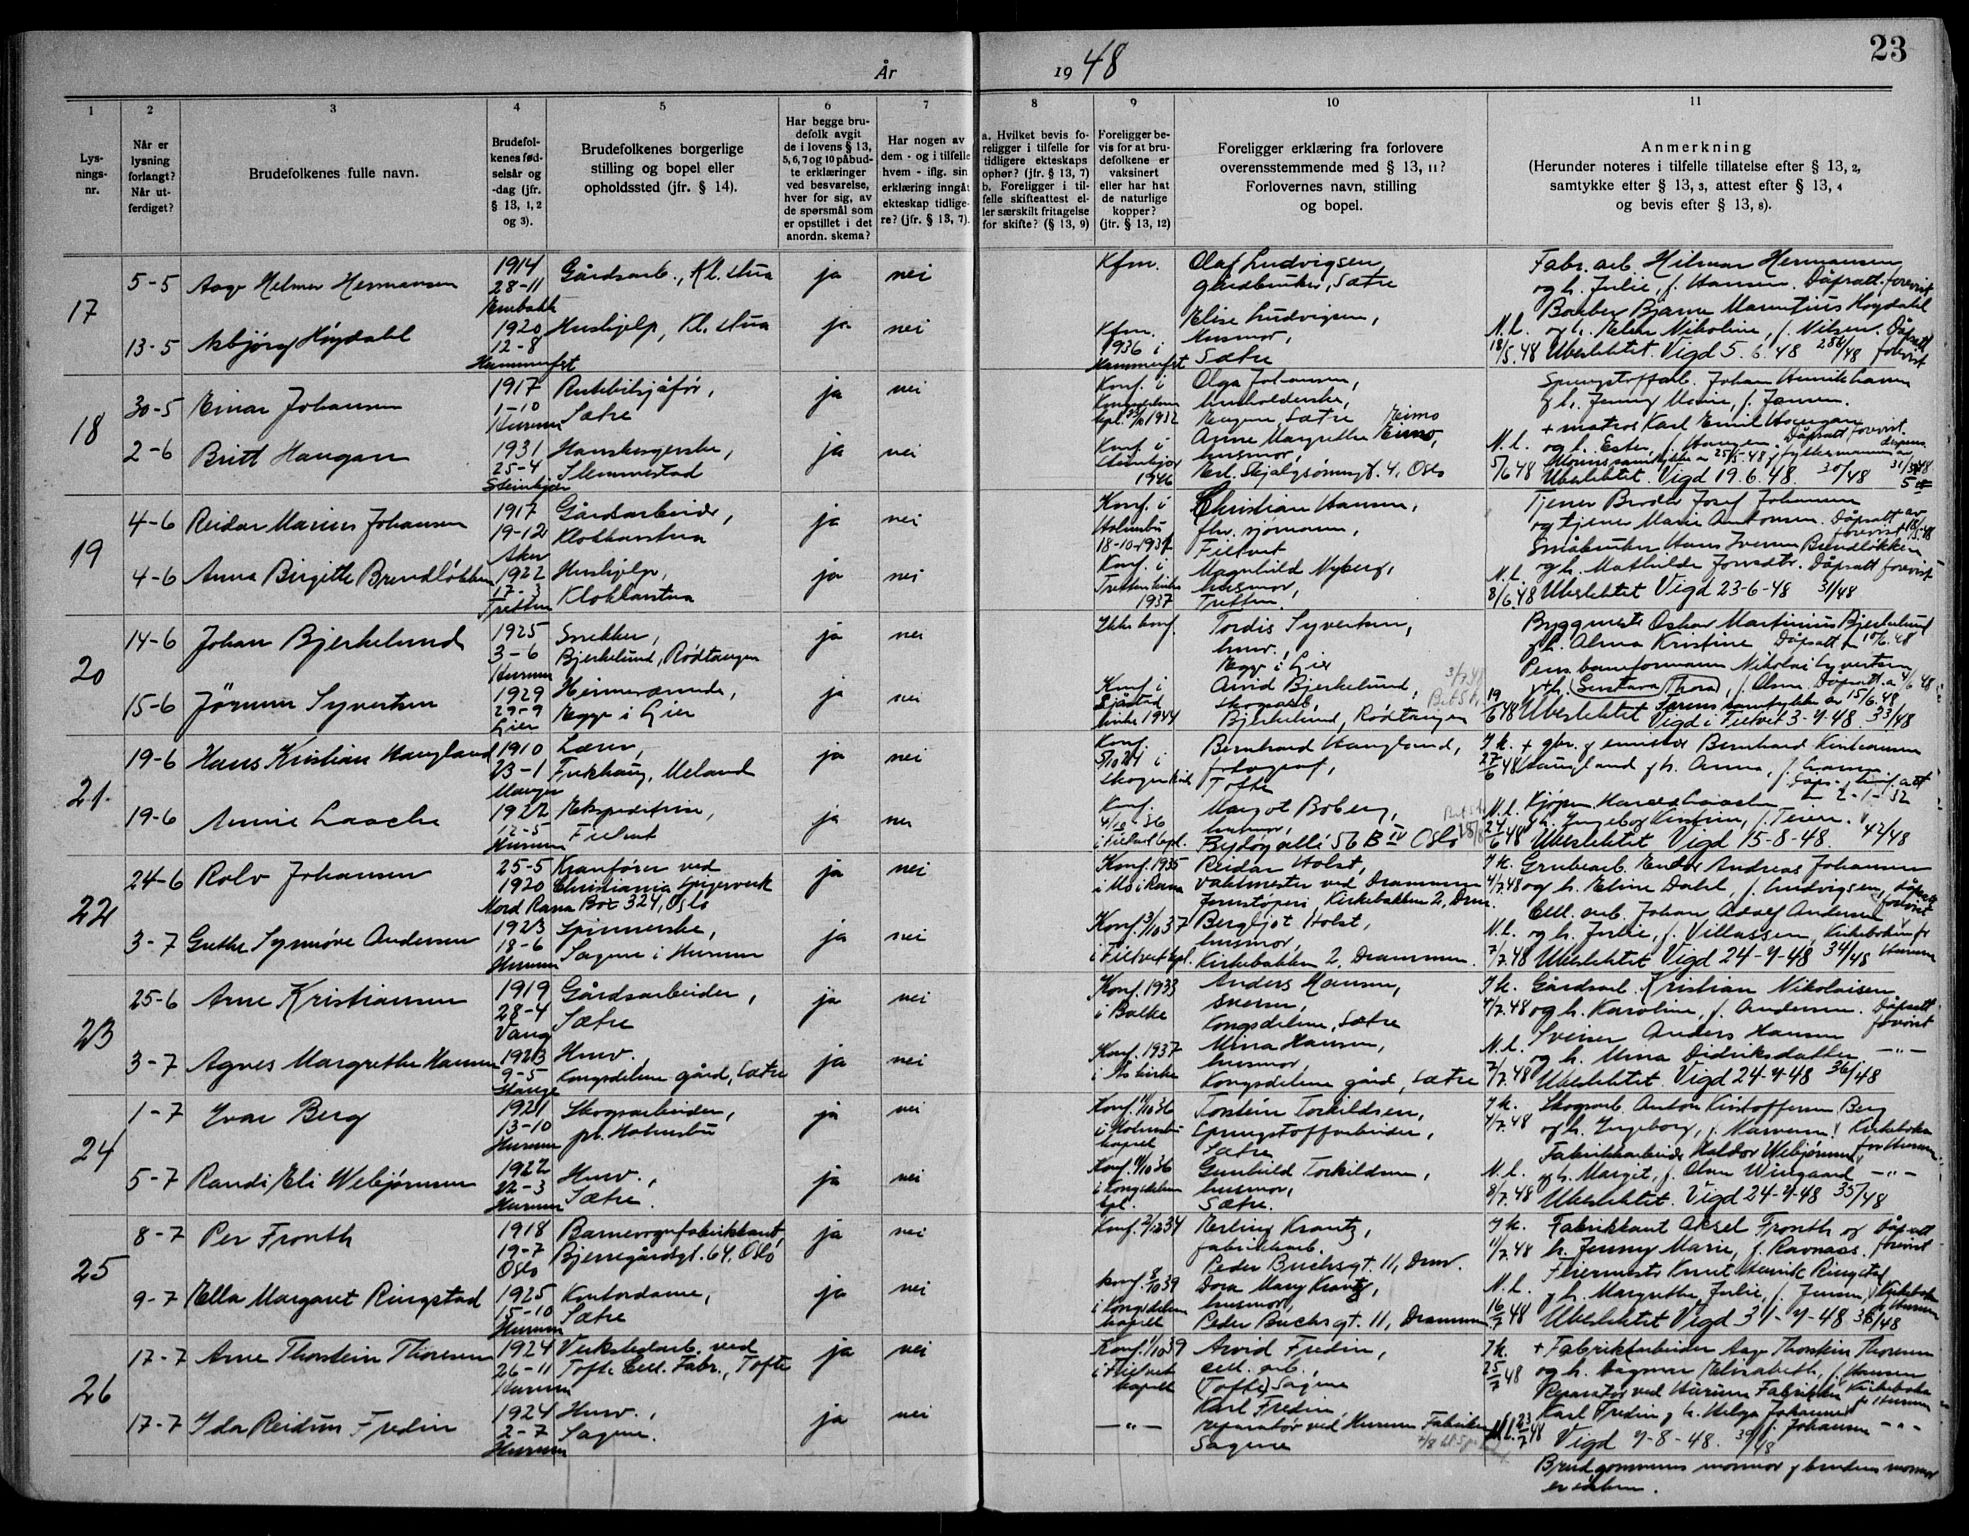 År 1948
23
1 2 3 4 5 6 7 8 9 10 11
Lys-
nings-
nr.
Når er
lysning
forlangt?
Når ut-
ferdiget?
Brudefolkenes fulle navn.
Brudefol-
kenes fød-
selsår og
-dag (jfr.
§ 13, 1, 2
og 3).
Brudefolkenes borgerlige
stilling og bopel eller
opholdssted (jfr. § 14).
Har begge bru-
defolk avgit
de i lovens § 13,
5, 6, 7 og 10 påbud-
te erklæringer
ved besvarelse,
hver for sig, av
de spørsmål som
er opstillet i det
anordn. skema?
Har nogen av
dem - og i tilfelle
hvem - iflg. sin
erklæring inngåt
ekteskap tidlige-
re? (jfr. § 13, 7).
a. Hvilket bevis fo-
religger i tilfelle for
tidligere ekteskaps
ophør? (jfr. § 13, 7)
b. Foreligger i til-
felle skifteattest el-
ler særskilt fritagelse
for skifte? (§ 13, 9)
Foreligger be-
vis for at bru-
defolkene er
vaksinert
eller har hat
de naturlige
kopper?
(jfr. § 13, 12)
Foreligger erklæring fra forlovere
overensstemmende med § 13, 11?
Forlovernes navn, stilling
og bopel.
Anmerkning
(Herunder noteres i tilfelle tillatelse efter § 13, 2,
samtykke efter § 13, 3, attest efter § 13, 4
og bevis efter § 13, 8).
17
5-5 Aage Helmer Hermansen
1914
28-11
Gårdsarb., Kl.stua
ja nei
Kfm.
Olaf Ludvigsen
gårdbruker, Sætre
Fabr. arb. Hilmar Hermansen
og h. Julie, f. Hansen. Dåpsatt. forevist
13-5 Asbjørg Høydahl
1920
12-8
Hammerfest
Hushjelp, Kl.stua
ja nei
Kfm.
1936 i
Hammerfest
Elise Ludvigsen,
husmor,
Sætre
Bjarne Marentius Høydahl
N.l. og h. Nikoline, f. Nilsen. Dåpsatt.
18/5.48 Ubeslektet Vigd 5.6.48 forevist
18
30-5 Einar Johansen
1917
1-10
Hurum
Rutebilsjåfør,
Sætre
ja nei
Konf. i
Kongsdelene
kpl. 1932
Olga Johansen,
husholderske,
Sætre
Sprengstoffarb. Johan
og h. Jenny Marie, f. Jansen.
2-6 Britt Haugan
1931
25-4
Steinkjer
Slemmestad
ja nei
Konf. i
Steinkjer
1946
Anne Margrethe Eimo,
husmor,
Erl. Skjalgsønnsgt. 4, Oslo
+ matros Karl Emil Haugan
N.l. og h. Ester, f. Haugen. Dåpsatt. forevist.
5/6 48 Ubeslektet. Vigd 19.6.48. 30/48
19
4-6 Reidar Marius Johansen
1917
19-12
Aker
Gårdsarbeider,
Klokkarstua
ja nei
Konf. i
Holmsbu
18-10-1931
Christian Hansen,
fhv. sjømann,
Filtvet
Tjener Brode Josef Johansen
og tjener Marie Antonsen. Dåpsatt. av
forevist
4-6 Anna Birgitte Brendløkken
1922
17-3
Tretten
Hushjelp,
Klokkarstua
ja nei
Konf. i
Tretten kirke
1937
Magnhild Nyberg,
husmor,
Tretten.
Småbruker Hans Iversen Brendløkken
N.l. og h. Mathilde Dåpsatt forevist
8/6.48 Ubeslektet Vigd 23-6-48 31/48
20
14-6 Johan Bjerkelund
1925
3-6
Hurum
Snekker,
Bjerkelund, Rødtangen
ja nei
Ikke konf.
Tordis Syvertsen,
husv.,
Egge i Lier
Byggmester Oskar Martinius Bjerkelund
og h. Alma Kristine, Dåpsatt. 10/6.48
15-6 Jørunn Syvertsen
1929
29-9
Lier
Hjemmeværende,
Egge i Lier
ja nei
Konf. i
Sjåstad
kirke 1944
Arvid Bjerkelund,
skogsarb.,
Bjerkelund, Rødtangen
3/7.48
Pens. baneformann Nikolai Syvertsen
og h. Gustava Thora, f. Olsen. Dåpsatt. 4/6 48
19/6 48 Ubeslektet 15/6.48
Vigd i Filtvet 3-7-48. 33/48
21.
19-6 Hans Kristian Haugland
1910
23-1
Manger
Lærer,
Fukhaug, Meland
ja nei
Konf.
5/10 24 i
Skoger kirke
Bernhard Haugland,
fotograf,
Tofte
J.k. + gbr. Bernhard Kristiansen
27/6 48 Haugland og h. Anna,
19-6 Annie Laache
1922
12-5
Hurum
Ekspeditrise,
Filtvet
ja nei
Konf.
4/10-36
i Filtvet kpl.
Margot Boberg,
husmor,
Bygdøy alle 56 B IV Oslo
N.l. Kjøpm. Harald Laache
24/6 48 og h. Ingeborg Kristine, f. Teien.
Ubeslektet Vigd 15-8-48. 42/48
22
24-6 Rolv Johansen
25-5
1920
Nord Rana
Kranfører ved
Christiania Spigerverk
Box 324, Oslo
ja nei
Konf. 1935
i Mo i Rana
Reidar Holst,
vaktmester ved Drammens
Jernstøperi Kirkebakken 2, Drm.
J.k. Grubearb. Andreas Johansen
4/7.48 og h. Eline Dahl, f. Ludvigsen, Dåpsatt
forevist
3-7 Grethe Synnøve Andersen
1923
18-6
Hurum
Spinnerske,
Sagene i Hurum
ja nei
Konf. 3/10 37
i Filtvet kpl.
Bergljot Holst,
husmor,
Kirkebakken 2, Drammen.
Cell. arb. Johan Adolf Andersen
N.l. og h. Julie, f. Villassen, Kirkeboken for
7/7.48 Ubeslektet Vigd 24-7-48 34/48 Hurum
23
25-6 Arne Kristiansen
1919
28-4
Vang
Gårdsarbeider,
Sætre
ja nei
Konf. 1933
i Balke
Anders Hansen,
sveiser,
Kongsdelene, Sætre
J.k. Gårdsarb. Kristian Nikolaisen
4/7.48 og h. Karoline, f. Andersen. Dåpsatt
forevist
3-7 Agnes Margrethe Hansen
1923
9-5
Stange
Husv.,
Kongsdelene gård, Sætre
ja nei
Konf. 1937
i Ås kirke
Mina Hansen,
husmor,
Kongsdelene gård, Sætre
Sveiser Anders Hansen
N.l. og h. Mina Didriksdatter —"—
7/7.48 Ubeslektet. Vigd 24-7-48 36/48
24
1-7 Ivar Berg
1921
13-10
Hurum
Skogsarbeider,
pr. Holmsbu
ja nei
Konf. 4/10 36
i Holmsbu
kapell
Torstein Torkildsen,
Sprengstoffarbeider,
Sætre
J.k. Skogsarb. Anton Kristoffersen Berg
4/7.48 og h. Ingeborg, Kirkeboka
for Hurum
5-7 Randi Eli Webjørnsen
1922
22-3
Hurum
Husv.,
Sætre.
ja nei
Konf. 4/10 36
i Kongsdelene
kpl.
Gunhild Torkildsen,
husmor,
Sætre.
Fabrikkarbeider Haldor Webjørnsen
N.l. og h. Margit, f. Olsen Wiegaard —"—
8/7.48 Ubeslektet. Vigd 24-7-48 35/48
25
8-7 Per Fronth
1918
19-7
Oslo
Barnevognfabrikkant,
Bjerregårdsgt. 64, Oslo
ja nei
Konf. 2/12 34
Erling Krantz,
fabrikkarb.
Peder Buchsgt. 11, Drm.
J.k. Fabrikkant Aksel Fronth og Dåpsatt
11/7.48 h. Jenny Marie, f. Ravnaas. forevist
9-7 Ella Margaret Ringstad
1925
15-10
Hurum
Kontordame,
Sætre
ja nei
Konf. 8/10 39
i Kongsdelene
kapell
Dora Mary Krantz,
husmor,
Peder Buchsgt. 11, Drammen
Feiermester Knut Henrik Ringstad
N.l. og h. Margrethe Julie, f. Jensen, Kirkeboka
f. Hurum
16/7 48 Ubeslektet Vigd 31-7-48 38/48
26
17-7 Arne Thorstein Thoresen
1924
26-11
Hurum
Verkstedarb. ved
Tofte Cell. Fabr., Tofte
ja nei
Konf. 1/10 39
i Filtvet
kapell
Arvid Fredin,
cell. arb.,
(Tofte) Sagene
J.k. + Fabrikkarbeider Aage Thorstein Thoresen
25/7 48 og h. Dagmar Elisabeth, f. Hansen
Kirkeboka
f. Hurum
17-7 Ida Reidun Fredin
1924
2-7
Hurum
Husv.,
Sagene.
ja nei
—"—
Karl Fredin,
reparatør ved Hurum Fabrikker
Sagene
Reparatør ved Hurum Fabrikker
Karl Fredin og h. Helga Johanne f. Johansen —"—
N.l. 23/7 48 Vigd 7-8-48. 39/48
Brudgommens mormor og brudens mormor
er søsken.